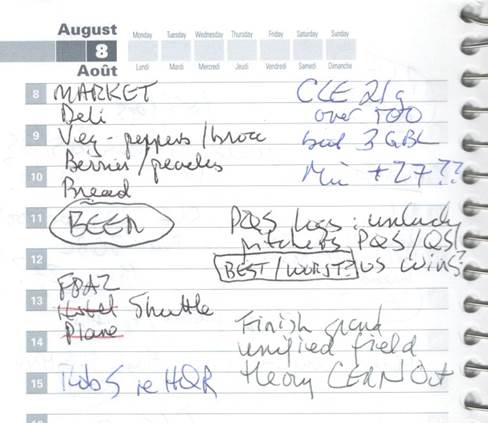 August
8
Août
Monday Tuesday Wednesday Thursday Friday Saturday Sunday
Lundi Mardi Mercredi Jeudi Vendredi Samedi Dimanche
8 MARKET
Deli
9 Veg - peppers/brocc
Berries/peaches
10 Bread
11 BEER
12
13 FBAZ
Hotel Shuttle
Plane
14
15 Rob S re HQR
CLE 21g
over 500
but 3 GBL
Min +27??
PQS Logs: unlucky
pitchers PQS/QS/
BEST/WORST? vs wins?
Finish grand
unified field
theory CERN Oct